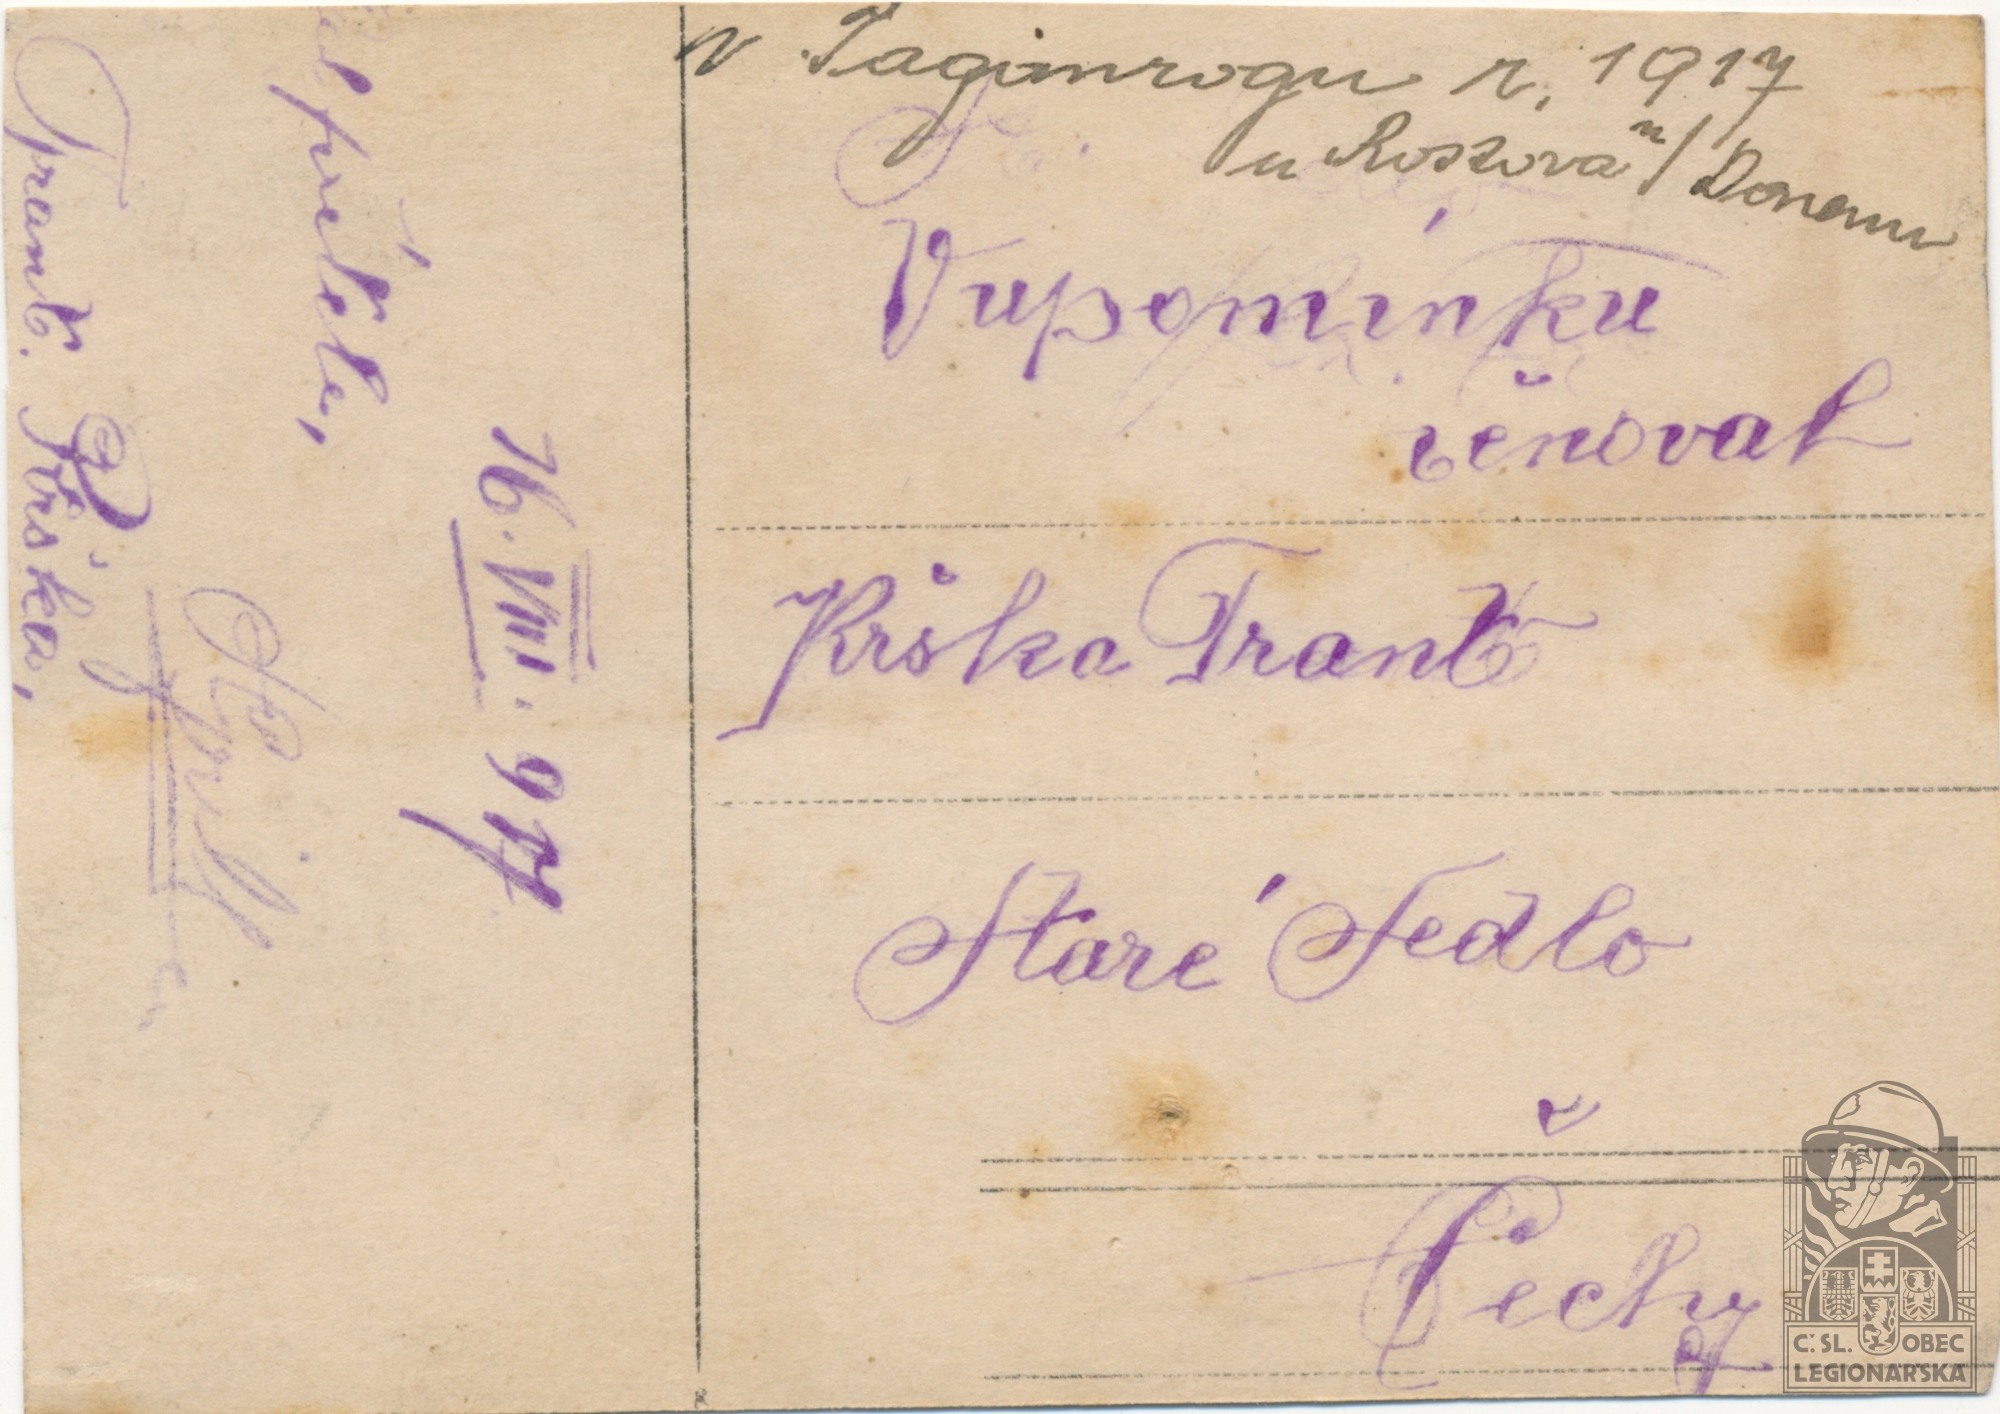 v Taganrogu r. 1917
u Rostova n/ Donem
Vupomínku
věnoval
Krška Frant
Staré Sedlo
Čechy
přítele,
Frant. Krška,
16. VIII. 917
Č.SL. OBEC
LEGIONÁŘSKÁ